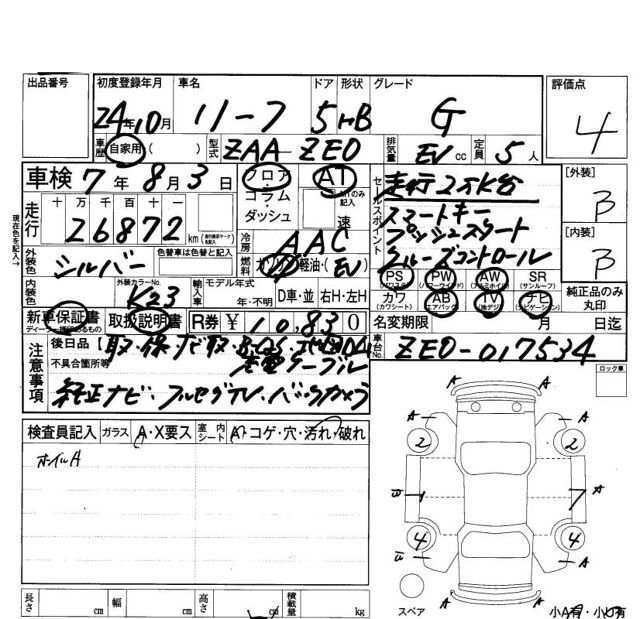 出品番号
初度登録年月 車名 ドア 形状 グレード 評価点
24年10月 リーフ 5 HB G 4
車歴 自家用( ) 型式 ZAA ZE0 排気量 EV cc 定員 5人
車検 7年 8月 3日 フロア コラム ダッシュ AT MTのみ記入 速
セールスポイント 走行2万K台
スマートキー
プッシュスタート
クルーズコントロール
[外装] B
[内装] B
現在色を記入→
走行 十万 万 千 百 十 一
26872 km
冷房 AAC
外装色 シルバー 色替車は色替と記入
燃料 ガソリン・軽油・(EV)
内装色 外装カラーNo. K23 輸入車 モデル年式 年・不明 D車・並 右H・左H
PS(パワステ) PW(パワーウインド) AW(アルミホイル) SR(サンルーフ)
カワ(カワシート) AB(エアバック) TV(テレビ) ナビ(ナビゲーション)
純正品のみ丸印
新車保証書 ディーラー捺印のあるもの 取扱説明書 R券 ¥ 10,830
名変期限 月 日迄
注意事項 後日品 取・保・ナビ取・
不具合箇所等 充電ケーブル
純正ナビ・フルセグTV・バックカメラ
車台No. ZE0-017534
ロック車
検査員記入 ガラス A・X要ス 室内シート A・コゲ・穴・汚れ・破れ
ホイルA
A
A A
2 2
A
A A
4 4
A A
A
長さ cm 幅 cm 高さ cm 積載量 kg
スペア
小A有・小U有